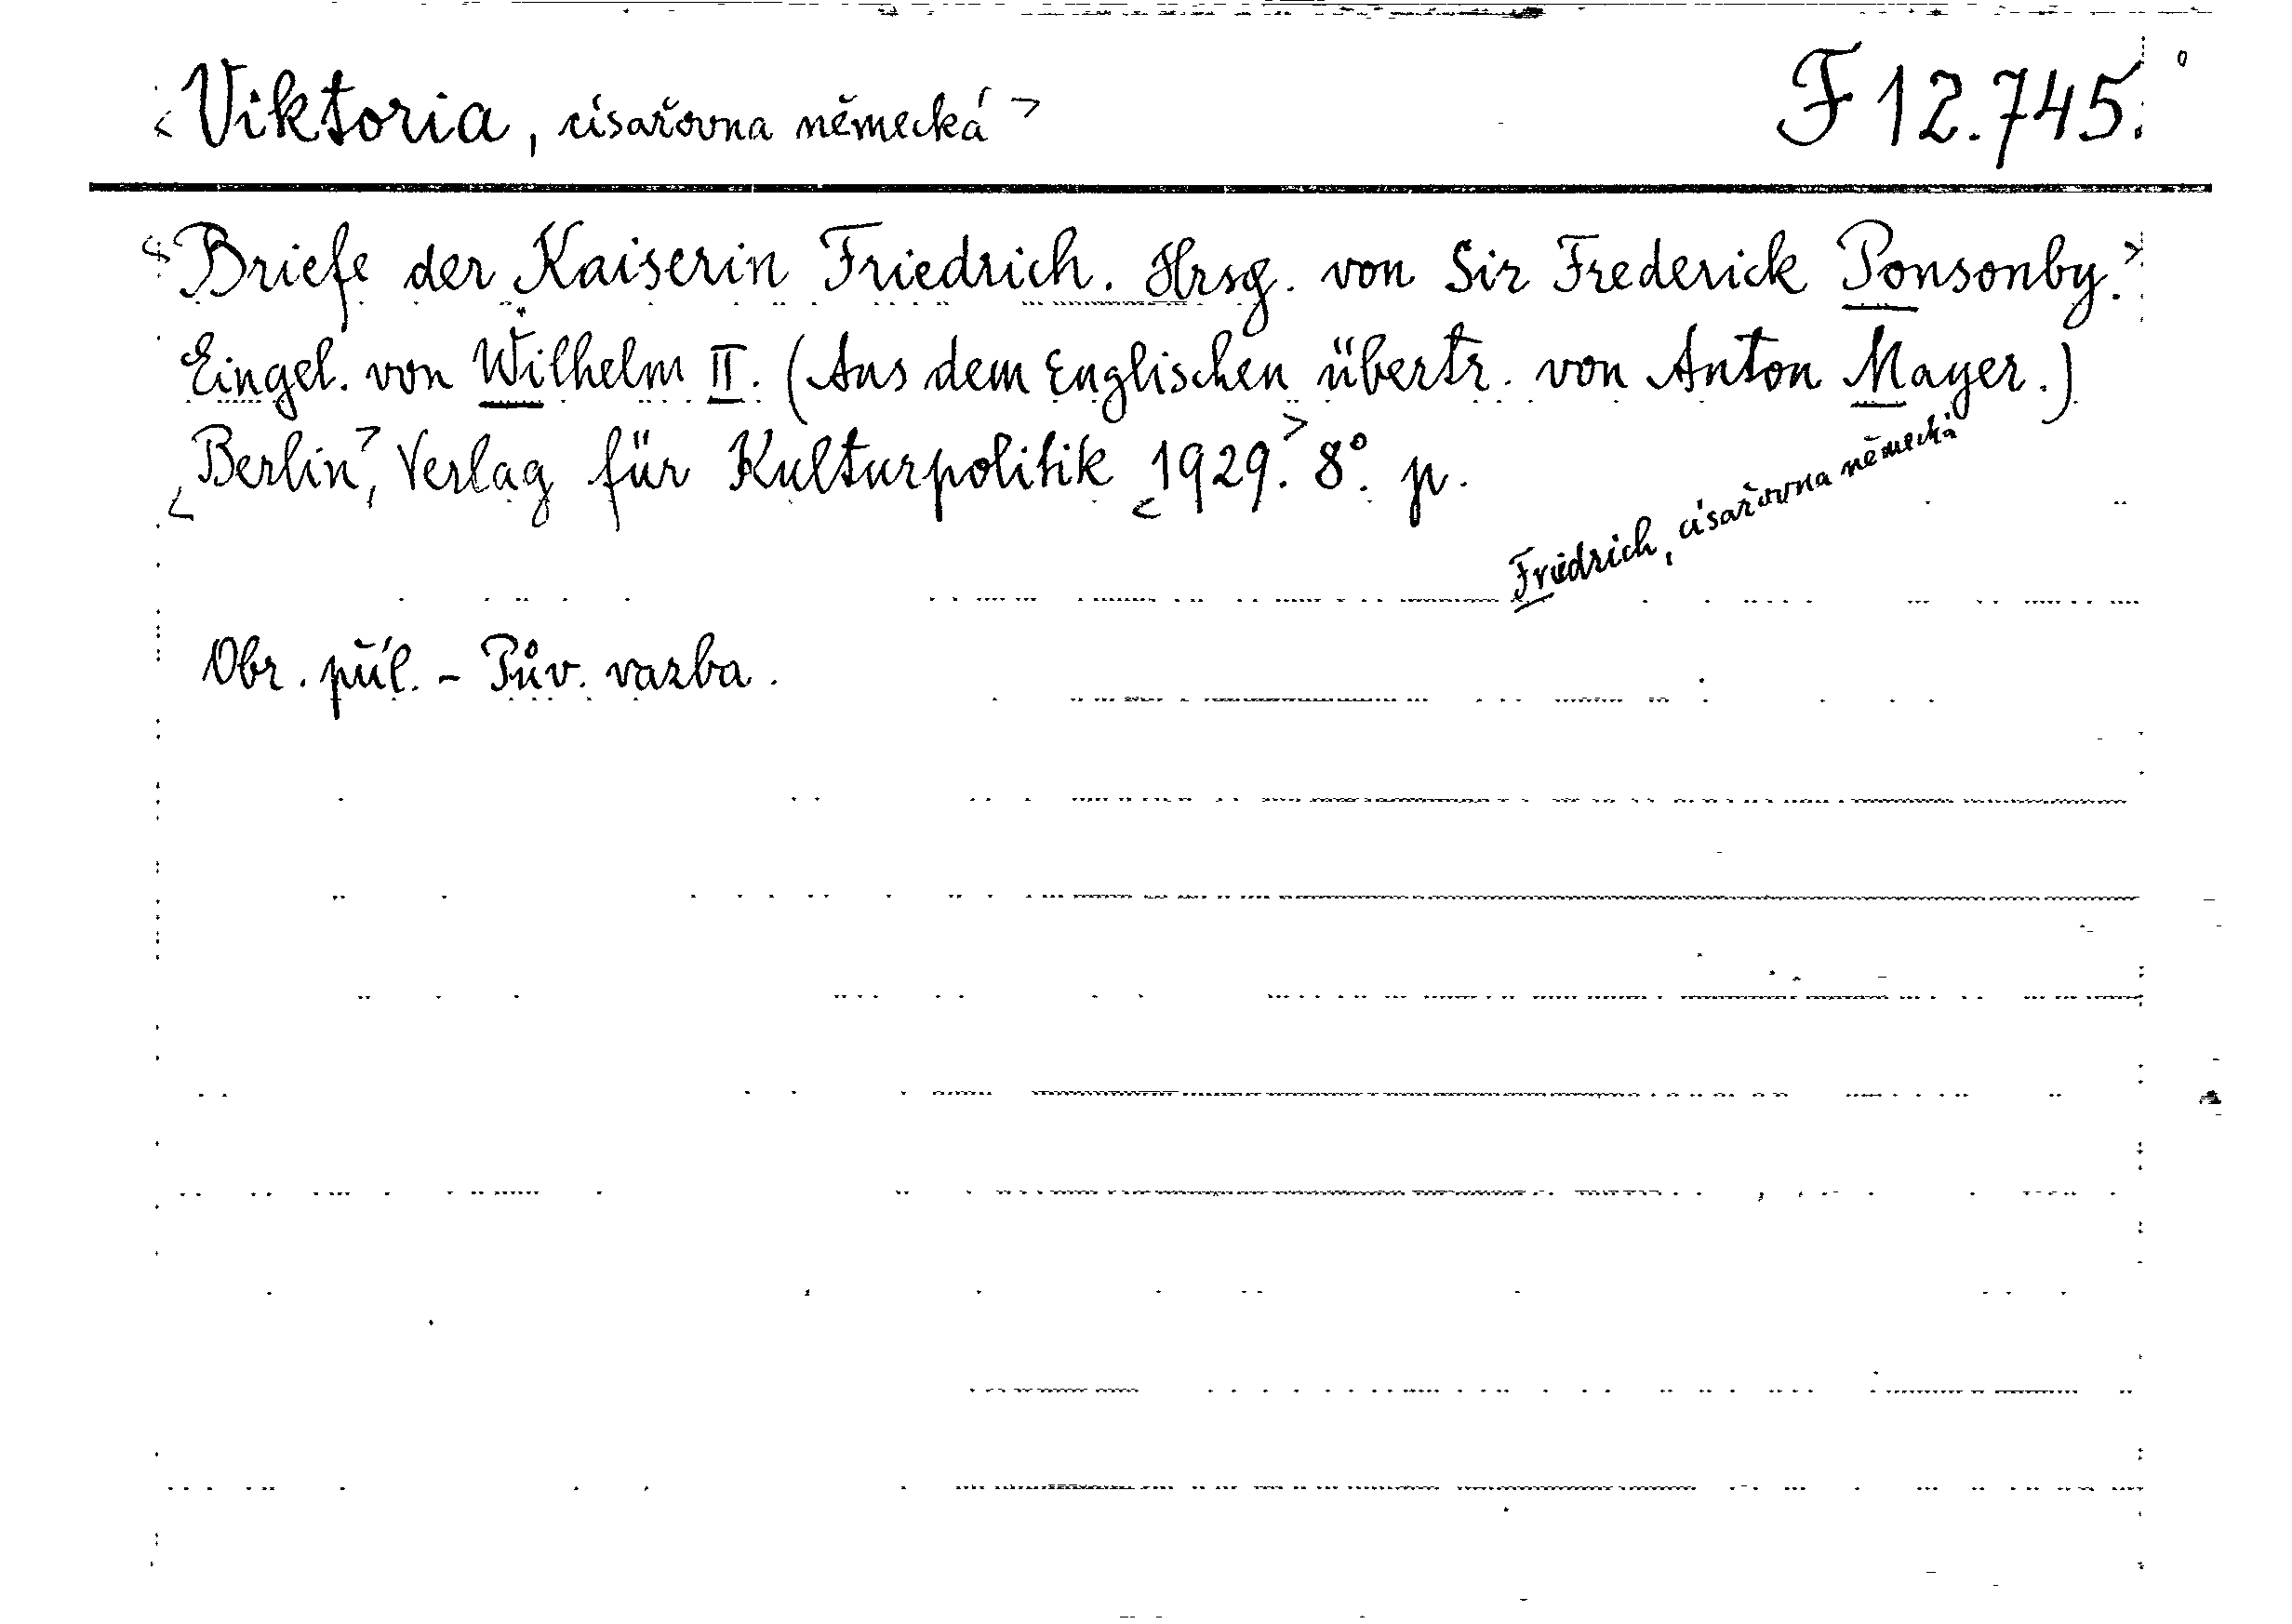 <Viktoria, císařovna německá> F 12.745.
<Briefe der Kaiserin Friedrich. Hrsg. von Sir Frederick Ponsonby.>
Eingel. von Wilhelm II. (Aus dem Englischen übertr. von Anton Mayer.)
<Berlin>, Verlag für Kulturpolitik <1929.> 8°. p.
Friedrich, císařovna německá
Obr. příl. - Pův. vazba.